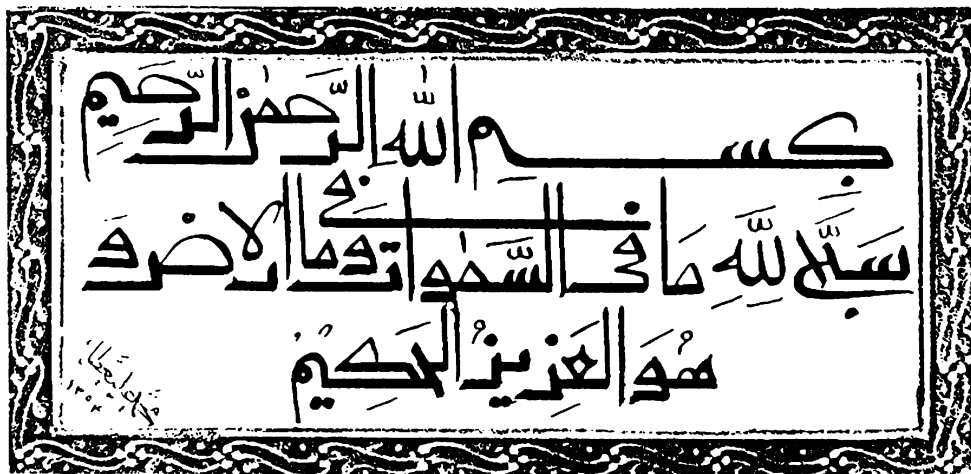 بِسْمِ اللّٰهِ الرَّحْمٰنِ الرَّحِيمِ
سَبَّحَ لِلّٰهِ مَا فِي السَّمٰوَاتِ وَمَا فِي الْأَرْضِ وَ
هُوَ الْعَزِيزُ الْحَكِيمُ